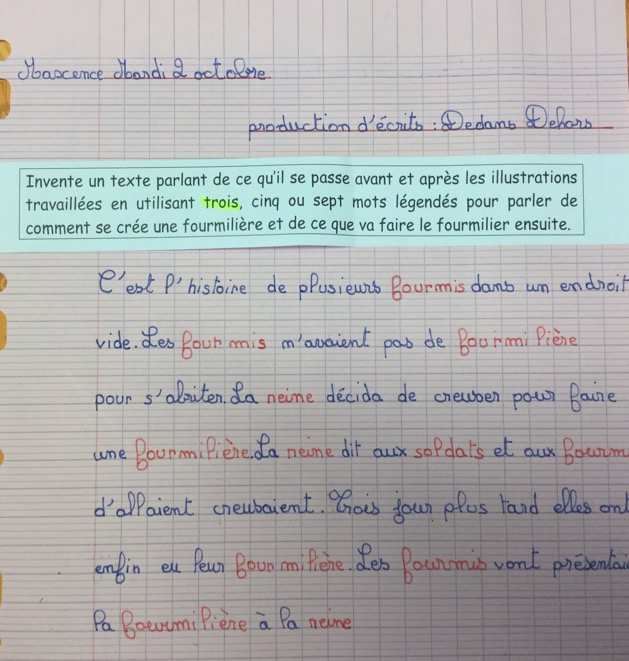 Maxence Mardi 2 octobre
production d'écrits : Dedans Dehors
Invente un texte parlant de ce qu'il se passe avant et après les illustrations
travaillées en utilisant trois, cinq ou sept mots légendés pour parler de
comment se crée une fourmilière et de ce que va faire le fourmilier ensuite.
C'est l'histoire de plusieurs fourmis dans un endroit
vide. Les fourmis n'avaient pas de fourmilière
pour s'abriter. La reine décida de creuser pour faire
une fourmilière. La reine dit aux soldats et aux fourm
d'allaient creusaient. Trois jour plus tard elles ont
enfin eu leur fourmilière. Les fourmis vont présentai
la fourmilière à la reine